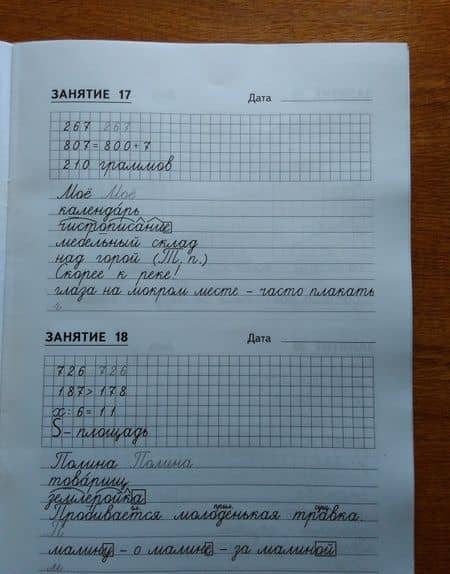 ЗАНЯТИЕ 17 Дата
267 267
807 = 800 + 7
210 граммов
Моё Моё
календарь
чистописание
мебельный склад
над горой (Т. п.)
Скорее к реке!
глаза на мокром месте – часто плакать
г
ЗАНЯТИЕ 18 Дата
726 726
187 > 178
х : 6 = 11
S – площадь
Полина Полина
товарищ
землеройка
Пробивается молоденькая травка.
П
малину – о малине – за малиной
м